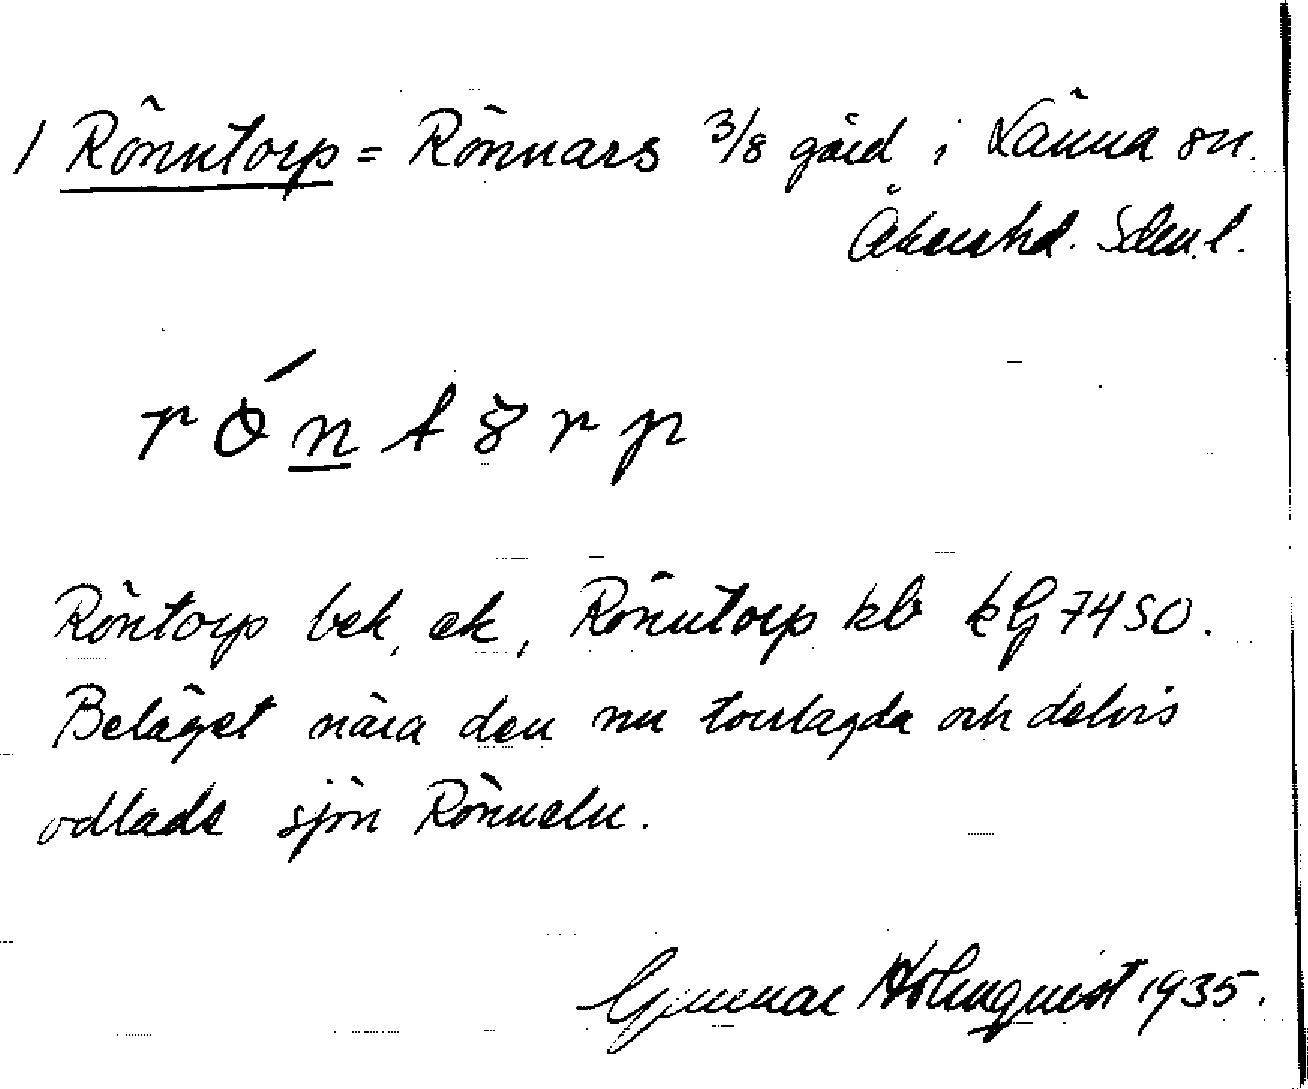 1 Rönntorp = Rönnars 3/8 gård i Länna sn.
Åkershd. Sdm.l.
röntorp
Röntorp bek, ek, Rönntorp kb kG 7450.
Beläget nära den nu torrlagda och delvis
odlade sjön Rönneln.
Gunnar Holmquist 1935.